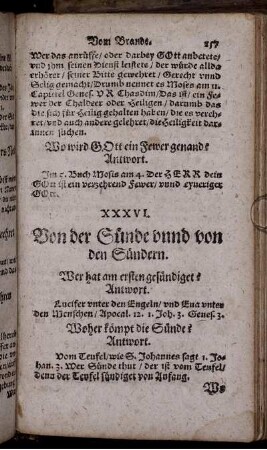 Vom Brande. 257
Wer das anrüffe/ oder darbey GOtt anbetete/
vnd jhm seinen Dienst leistere/ der würde allda
erhöret/ seiner Bitte gewehret/ Gerecht vnnd
Selig gemacht/ Drumb nennet es Moses am 11.
Capittel Genes. V R Chasdim/ Das ist/ ein Fe-
wer der Chaldeer oder Heiligen/ darumb das
die sich für Heilig gehalten haben/ die es vereh-
ret/ vnd auch andere gelehret/ die Heiligkeit dar-
innen suchen.
Wo wird GOtt ein Fewer genand?
Antwort.
Im 5. Buch Mosis am 4. Der HERR dein
GOtt ist ein verzehrend Fewer/ vnnd eyueriger
GOtt.
XXXVI.
Von der Sünde vnnd von
den Sündern.
Wer hat am ersten gesündiget?
Antwort.
Lucifer vnter den Engeln/ vnd Eua vnter
den Menschen/ Apocal. 12. 1. Joh. 3. Genes. 3.
Woher kömpt die Sünde?
Antwort.
Vom Teufel/ wie S. Johannes sagt 1. Jo-
han. 3. Wer Sünde thut/ der ist vom Teufel/
denn der Teyfel sündiget von Anfang.